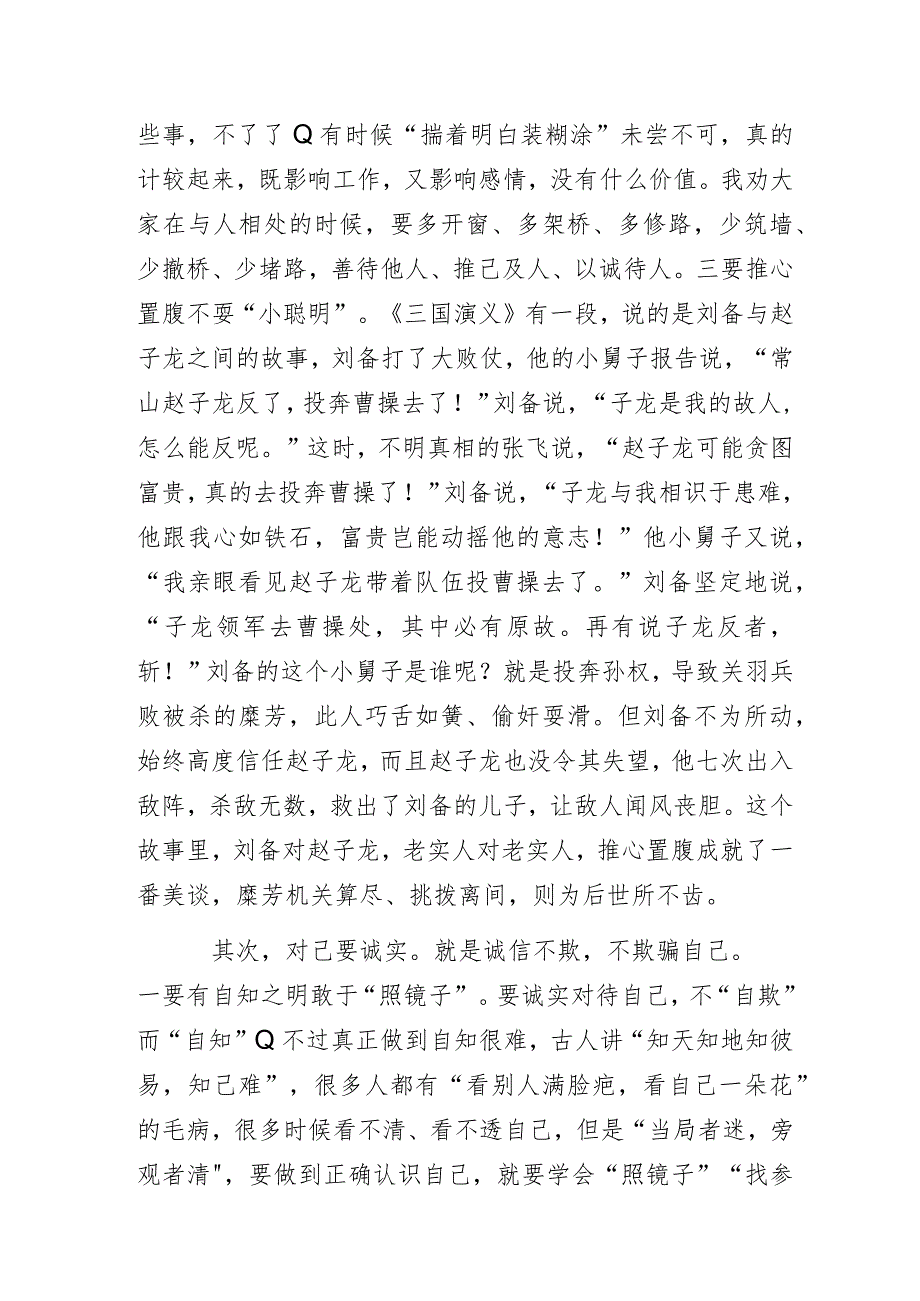 些事，不了了Q有时候“揣着明白装糊涂”未尝不可，真的
计较起来，既影响工作，又影响感情，没有什么价值。我劝大
家在与人相处的时候，要多开窗、多架桥、多修路，少筑墙、
少撤桥、少堵路，善待他人、推己及人、以诚待人。三要推心
置腹不耍“小聪明”。《三国演义》有一段，说的是刘备与赵
子龙之间的故事，刘备打了大败仗，他的小舅子报告说，“常
山赵子龙反了，投奔曹操去了！”刘备说，“子龙是我的故人，
怎么能反呢。”这时，不明真相的张飞说，“赵子龙可能贪图
富贵，真的去投奔曹操了！”刘备说，“子龙与我相识于患难，
他跟我心如铁石，富贵岂能动摇他的意志！”他小舅子又说，
“我亲眼看见赵子龙带着队伍投曹操去了。”刘备坚定地说，
“子龙领军去曹操处，其中必有原故。再有说子龙反者，
斩！”刘备的这个小舅子是谁呢？就是投奔孙权，导致关羽兵
败被杀的糜芳，此人巧舌如簧、偷奸耍滑。但刘备不为所动，
始终高度信任赵子龙，而且赵子龙也没令其失望，他七次出入
敌阵，杀敌无数，救出了刘备的儿子，让敌人闻风丧胆。这个
故事里，刘备对赵子龙，老实人对老实人，推心置腹成就了一
番美谈，糜芳机关算尽、挑拨离间，则为后世所不齿。
其次，对己要诚实。就是诚信不欺，不欺骗自己。
一要有自知之明敢于“照镜子”。要诚实对待自己，不“自欺”
而“自知”Q不过真正做到自知很难，古人讲“知天知地知彼
易，知己难”，很多人都有“看别人满脸疤，看自己一朵花”
的毛病，很多时候看不清、看不透自己，但是“当局者迷，旁
观者清"，要做到正确认识自己，就要学会“照镜子”“找参